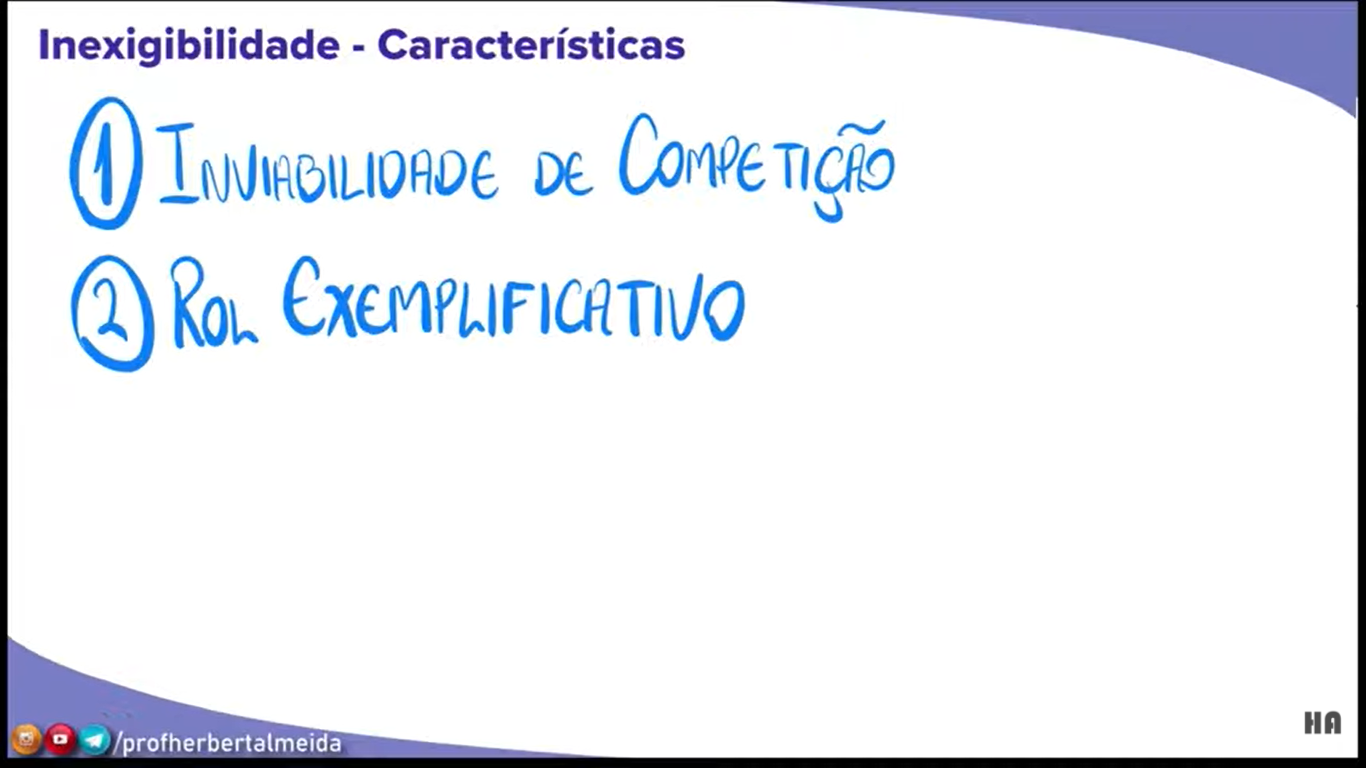 Inexigibilidade - Características
1 INVIABILIDADE DE COMPETIÇÃO
2 ROL EXEMPLIFICATIVO
/profherbertalmeida
HA